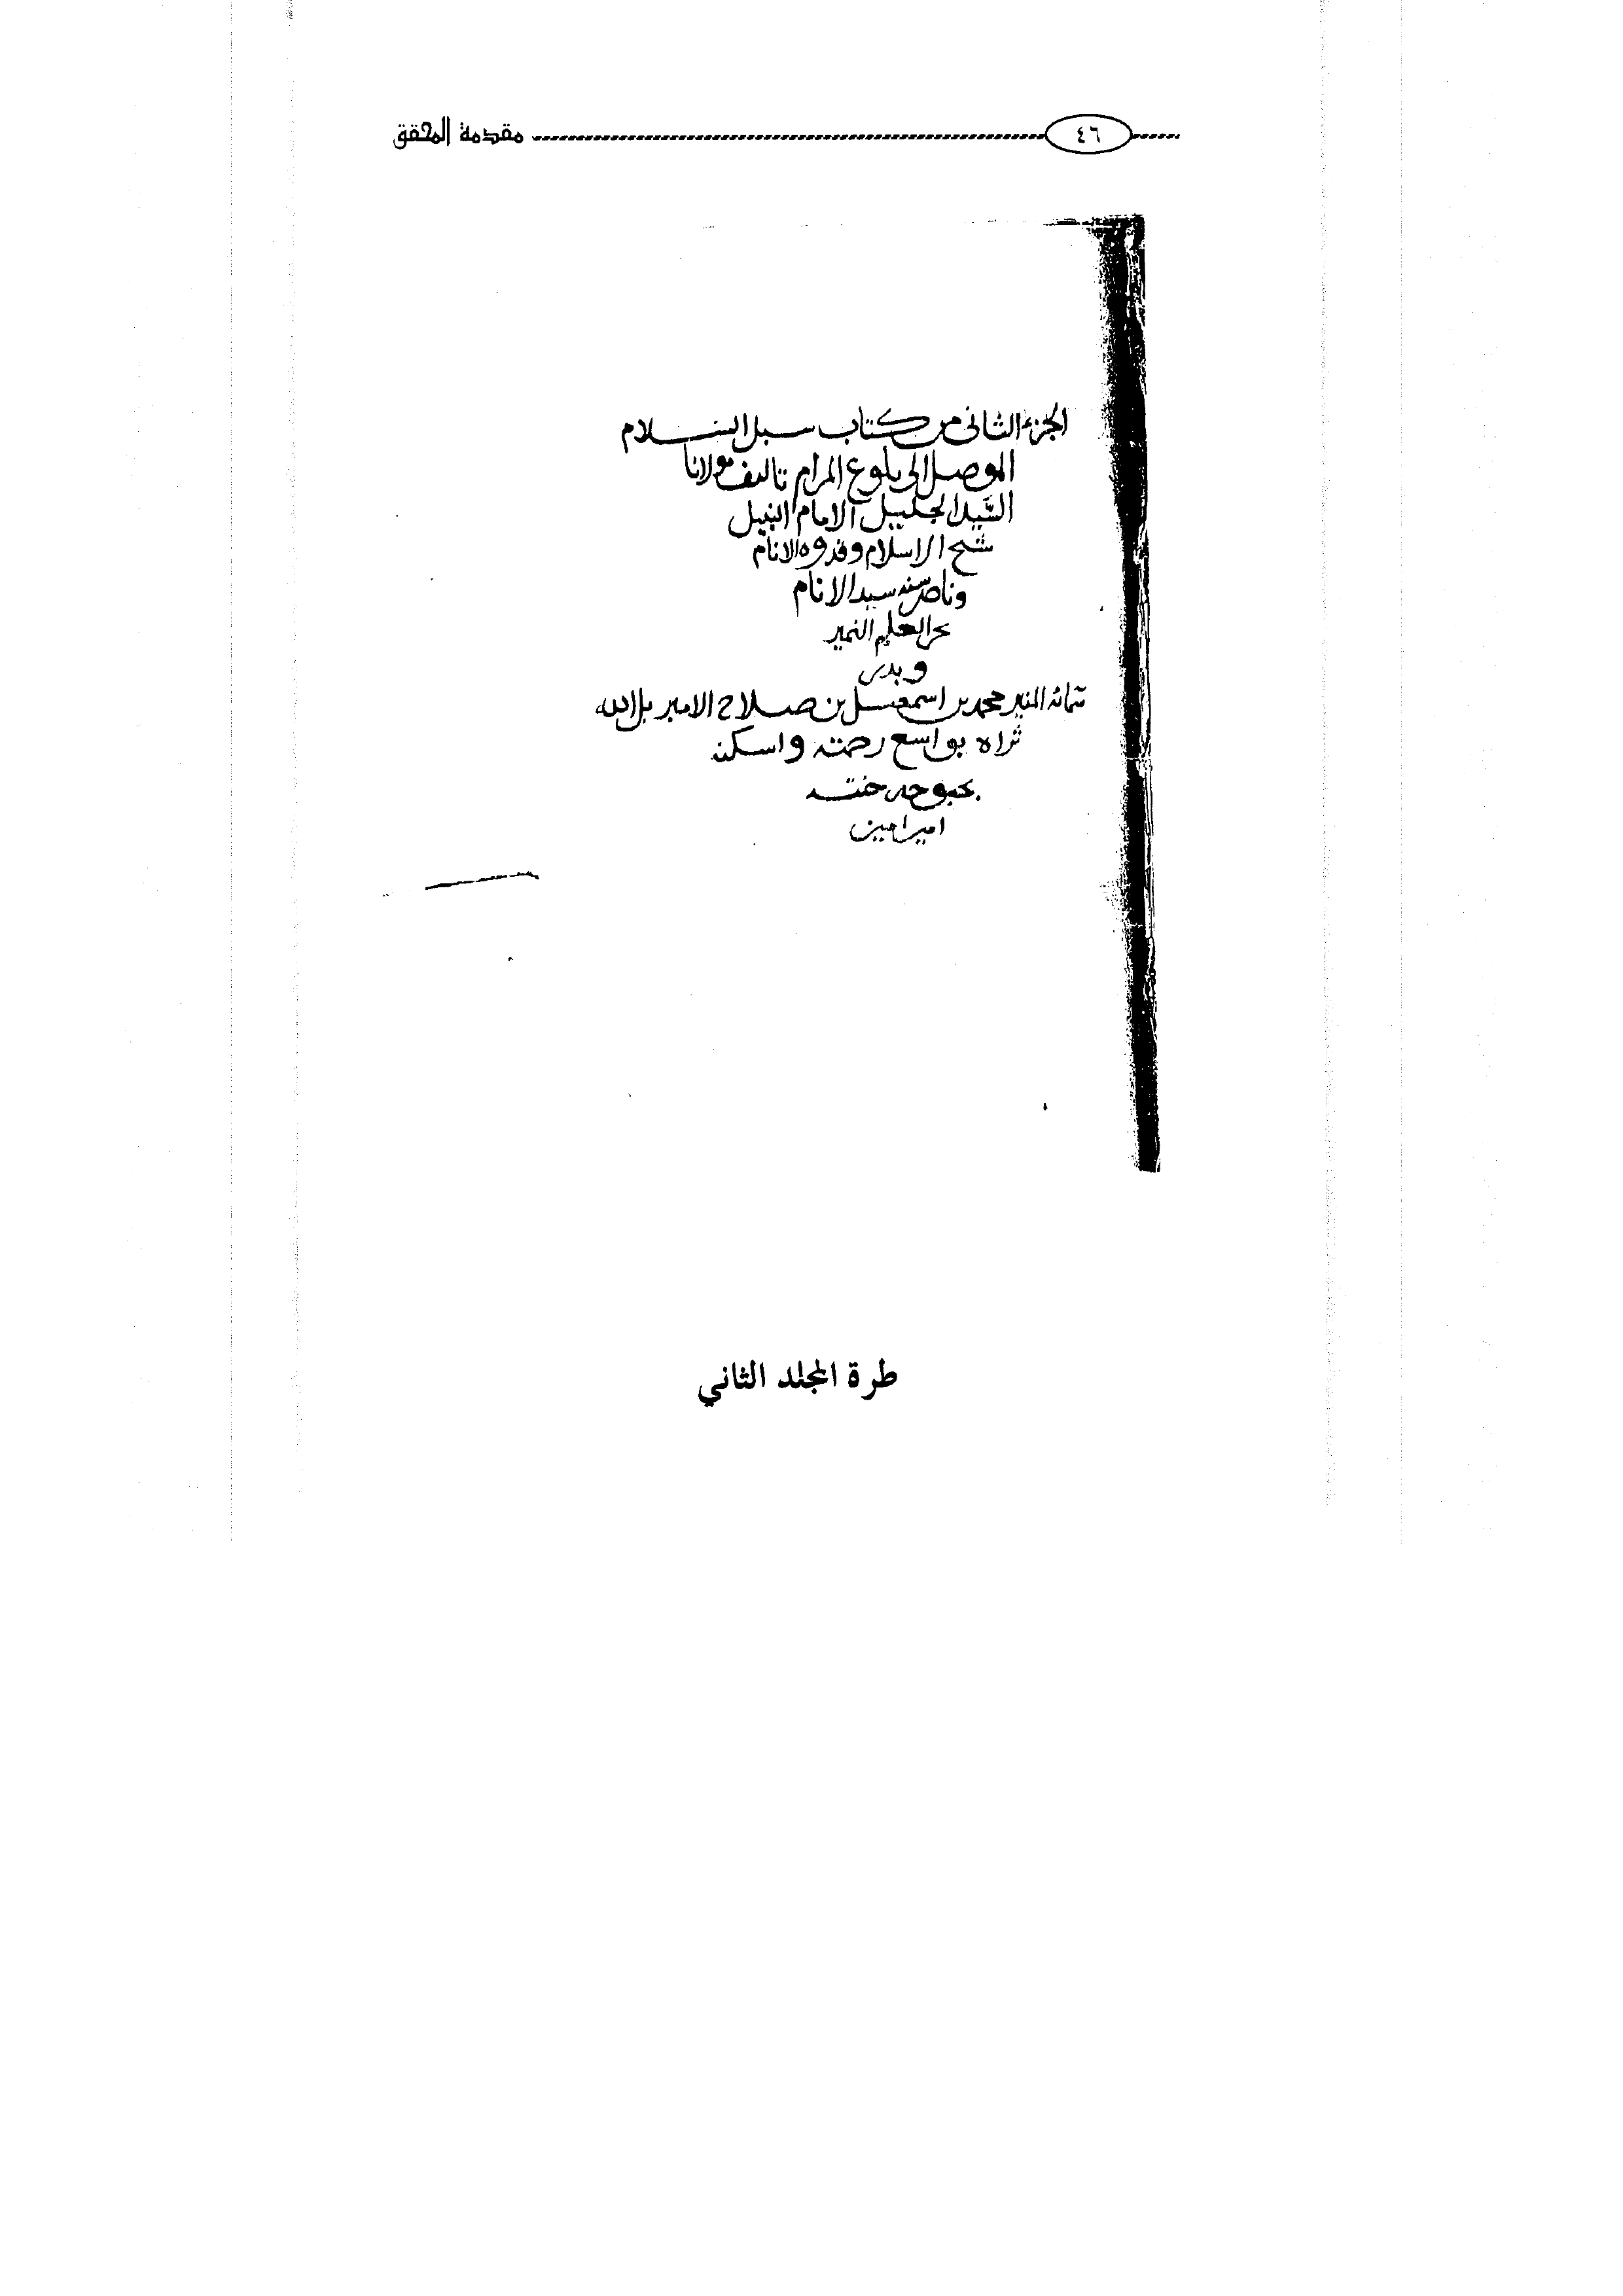 ٤٦ مقدمة المحقق
الجزء الثاني من كتاب سبل السلام
الموصل الى بلوغ المرام تاليف مولانا
السَّيد الجليل الامام النبيل
شيخ الاسلام وقدوه الانام
وناصر سنه سيد الانام
بحر العلم النمير
وبدر
المنير محمد بن اسمعيل بن صلاح الامير بل الله
ثراه بواسع رحمته واسكنه
بحبوحه جنته
امين امين
طرة المجلد الثاني